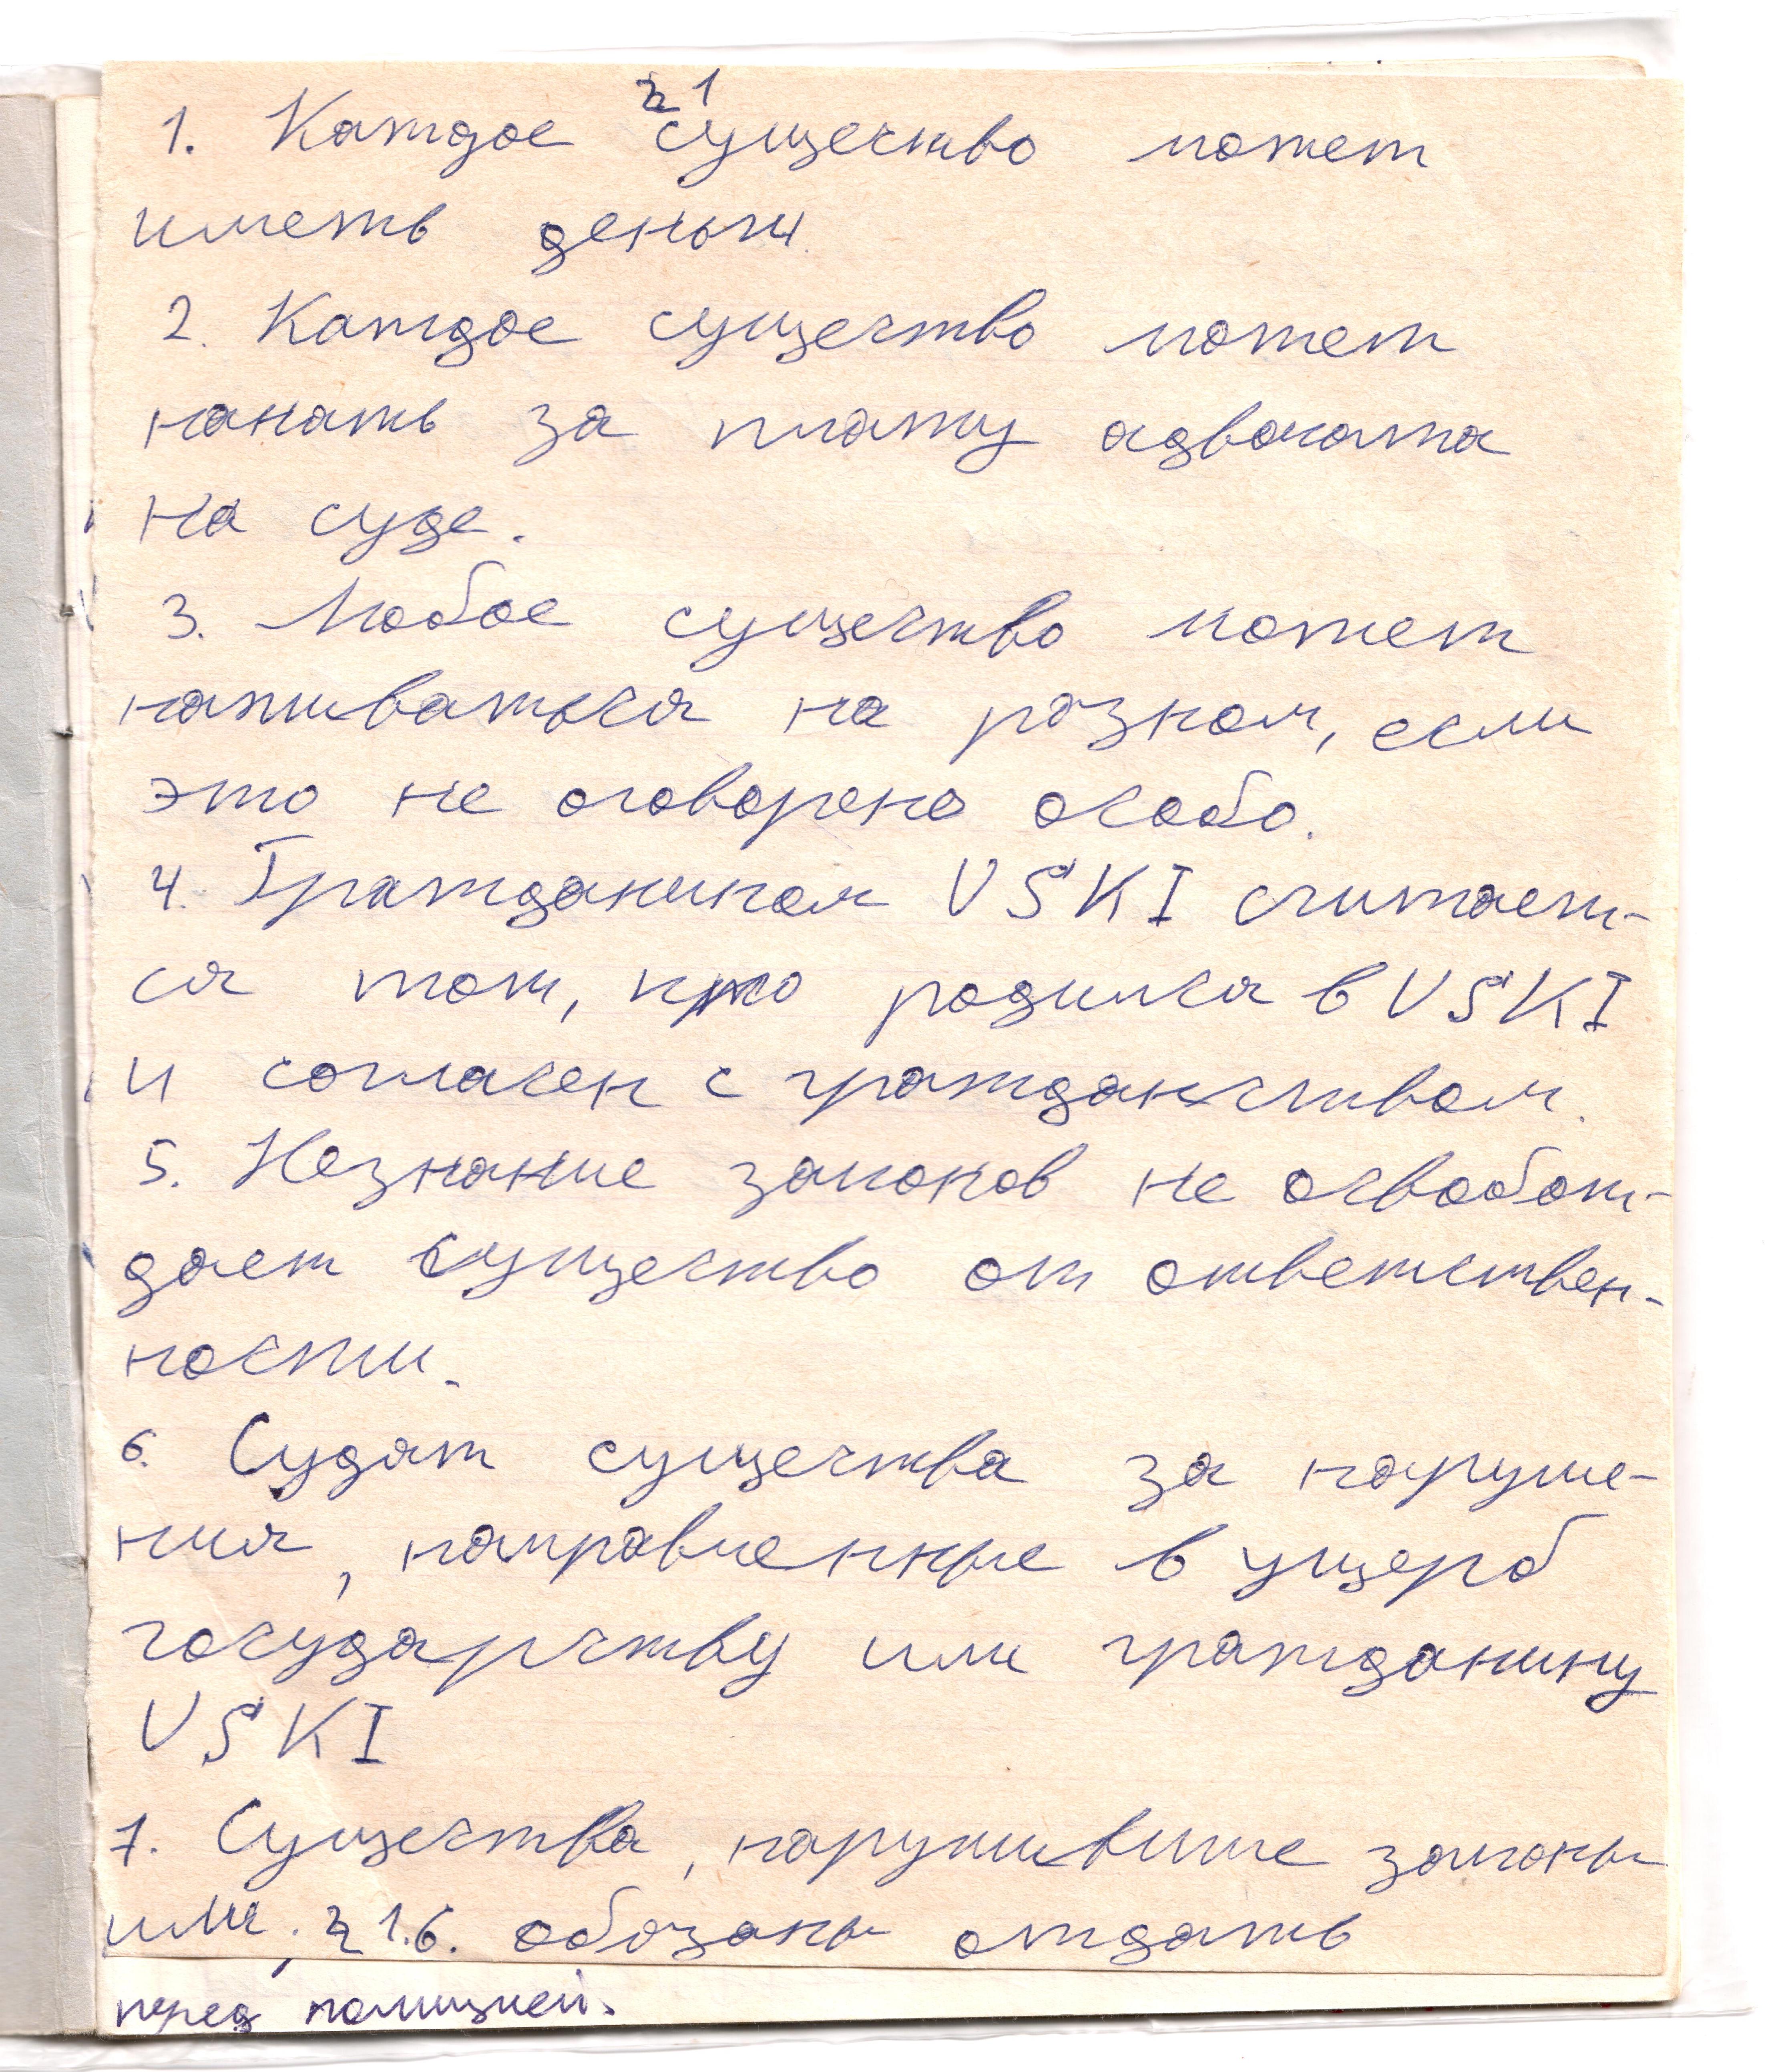 § 1
1. Каждое существо может
иметь деньги.
2. Каждое существо может
нанять за плату адвоката
на суде.
3. Любое существо может
наживаться на разном, если
это не оговорено особо.
4. Гражданином VSKI считает-
ся тот, кто родился в VSKI
и согласен с гражданством.
5. Незнание законов не освобож-
дает существо от ответствен-
ности.
6. Судят существа за наруше-
ния, направленные в ущерб
государству или гражданину
VSKI
7. Существа, нарушившие законы
или § 1.6. обязаны отдать
перед полицией.